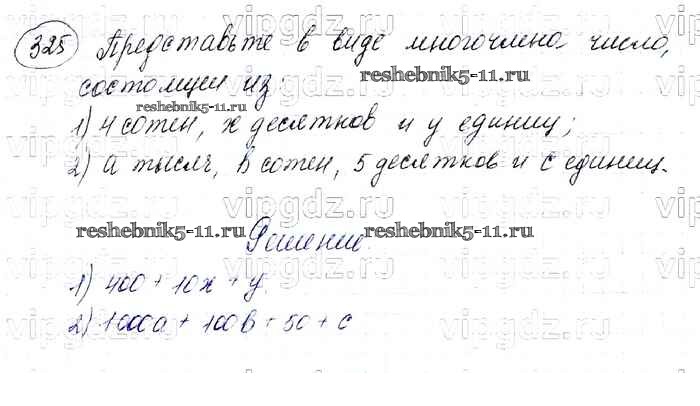 325 Представьте в виде многочлена число,
состоящее из:
1) 4 сотен, x десятков и y единиц;
2) a тысяч, b сотен, 5 десятков и c единиц.
Решение:
1) 400 + 10x + y
2) 1000a + 100b + 50 + c
vipgdz.ru
reshebnik5-11.ru
reshebnik5-11.ru
reshebnik5-11.ru
reshebnik5-11.ru